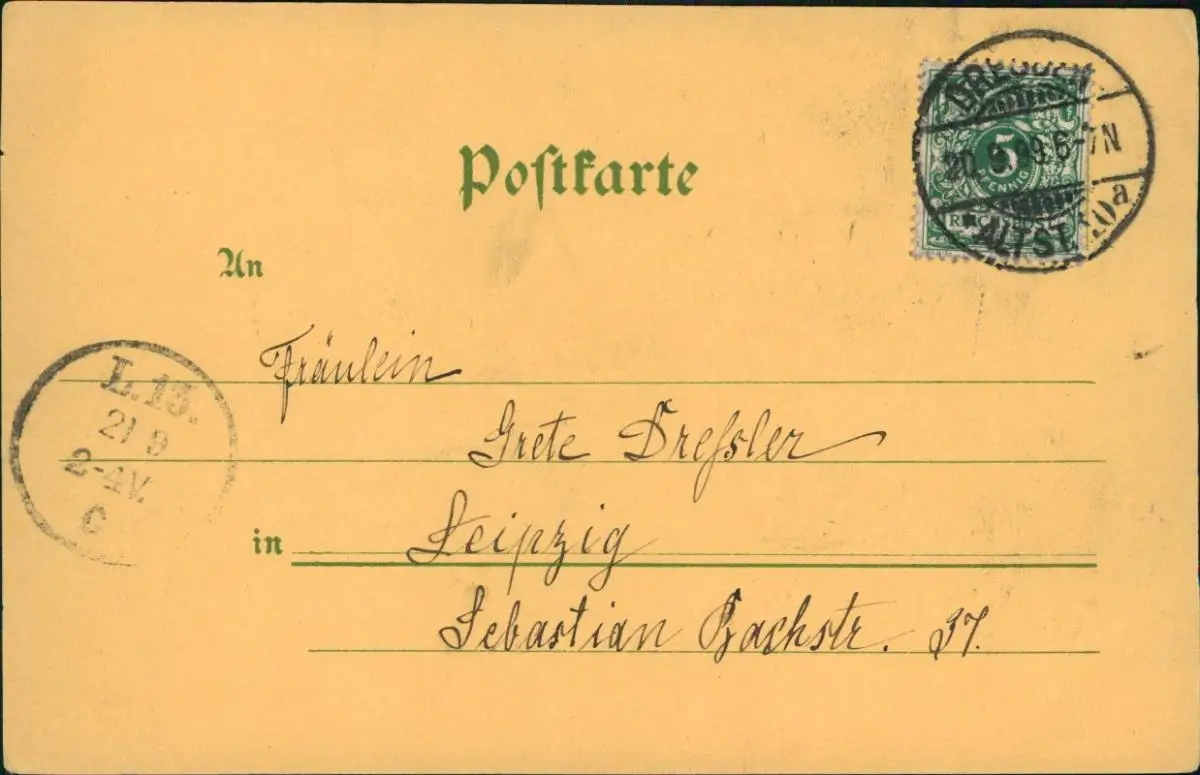 DRESDEN
20.9.99.6-7N
ALTST. 10a
5
PFENNIG
Postkarte
An
Fräulein
Grete Dreſsler
in Leipzig
Sebastian Bachstr. 37.
L.13.
21 9
2-4V.
C